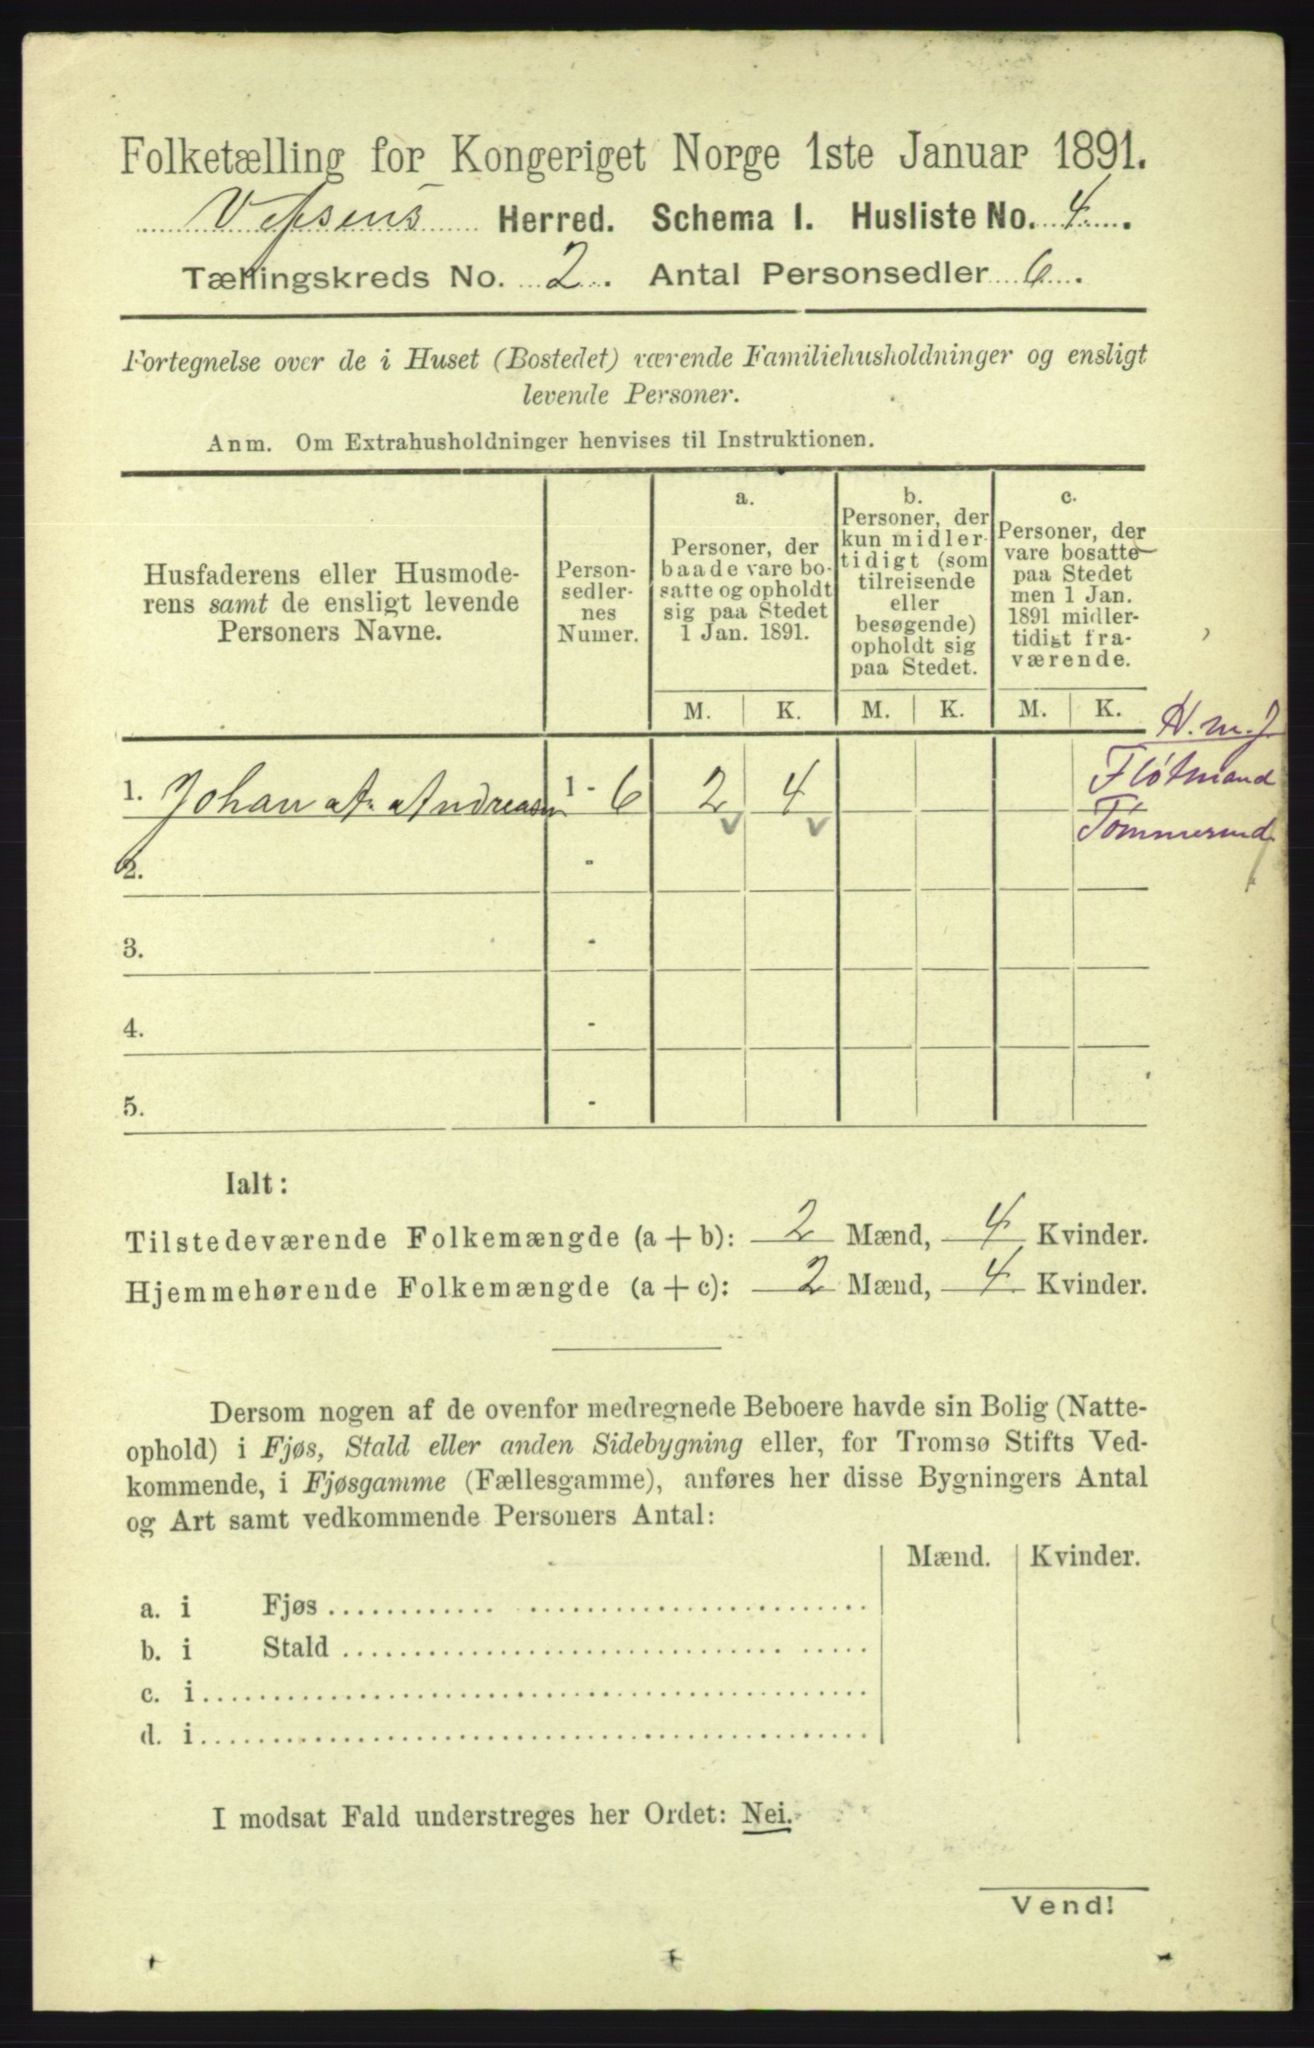 Folketælling for Kongeriget Norge 1ste Januar 1891.
Vefsens Herred. Schema I. Husliste No. 4.
Tællingskreds No. 2. Antal Personsedler 6.
Fortegnelse over de i Huset (Bostedet) værende Familiehusholdninger og ensligt
levende Personer.
Anm. Om Extrahusholdninger henvises til Instruktionen.
Husfaderens eller Husmode-
rens samt de ensligt levende
Personers Navne.
Person-
sedler-
nes
Numer.
a.
Personer, der
baade vare bo-
satte og opholdt
sig paa Stedet
1 Jan. 1891.
b.
Personer, der
kun midler-
tidigt (som
tilreisende
eller
besøgende)
opholdt sig
paa Stedet.
c.
Personer, der
vare bosatte
paa Stedet
men 1 Jan.
1891 midler-
tidigt fra-
værende.
M. K. M. K. M. K.
H. m. J.
Fløtmand
1. Johan A. Andreasen 1 - 6 2 4
2. -
3. -
4. -
5. -
Ialt:
Tilstedeværende Folkemængde (a + b): 2 Mænd, 4 Kvinder.
Hjemmehørende Folkemængde (a + c): 2 Mænd, 4 Kvinder.
Dersom nogen af de ovenfor medregnede Beboere havde sin Bolig (Natte-
ophold) i Fjøs, Stald eller anden Sidebygning eller, for Tromsø Stifts Ved-
kommende, i Fjøsgamme (Fællesgamme), anføres her disse Bygningers Antal
og Art samt vedkommende Personers Antal:
Mænd. Kvinder.
a. i Fjøs
b. i Stald
c. i
d. i
I modsat Fald understreges her Ordet: Nei.
Vend!